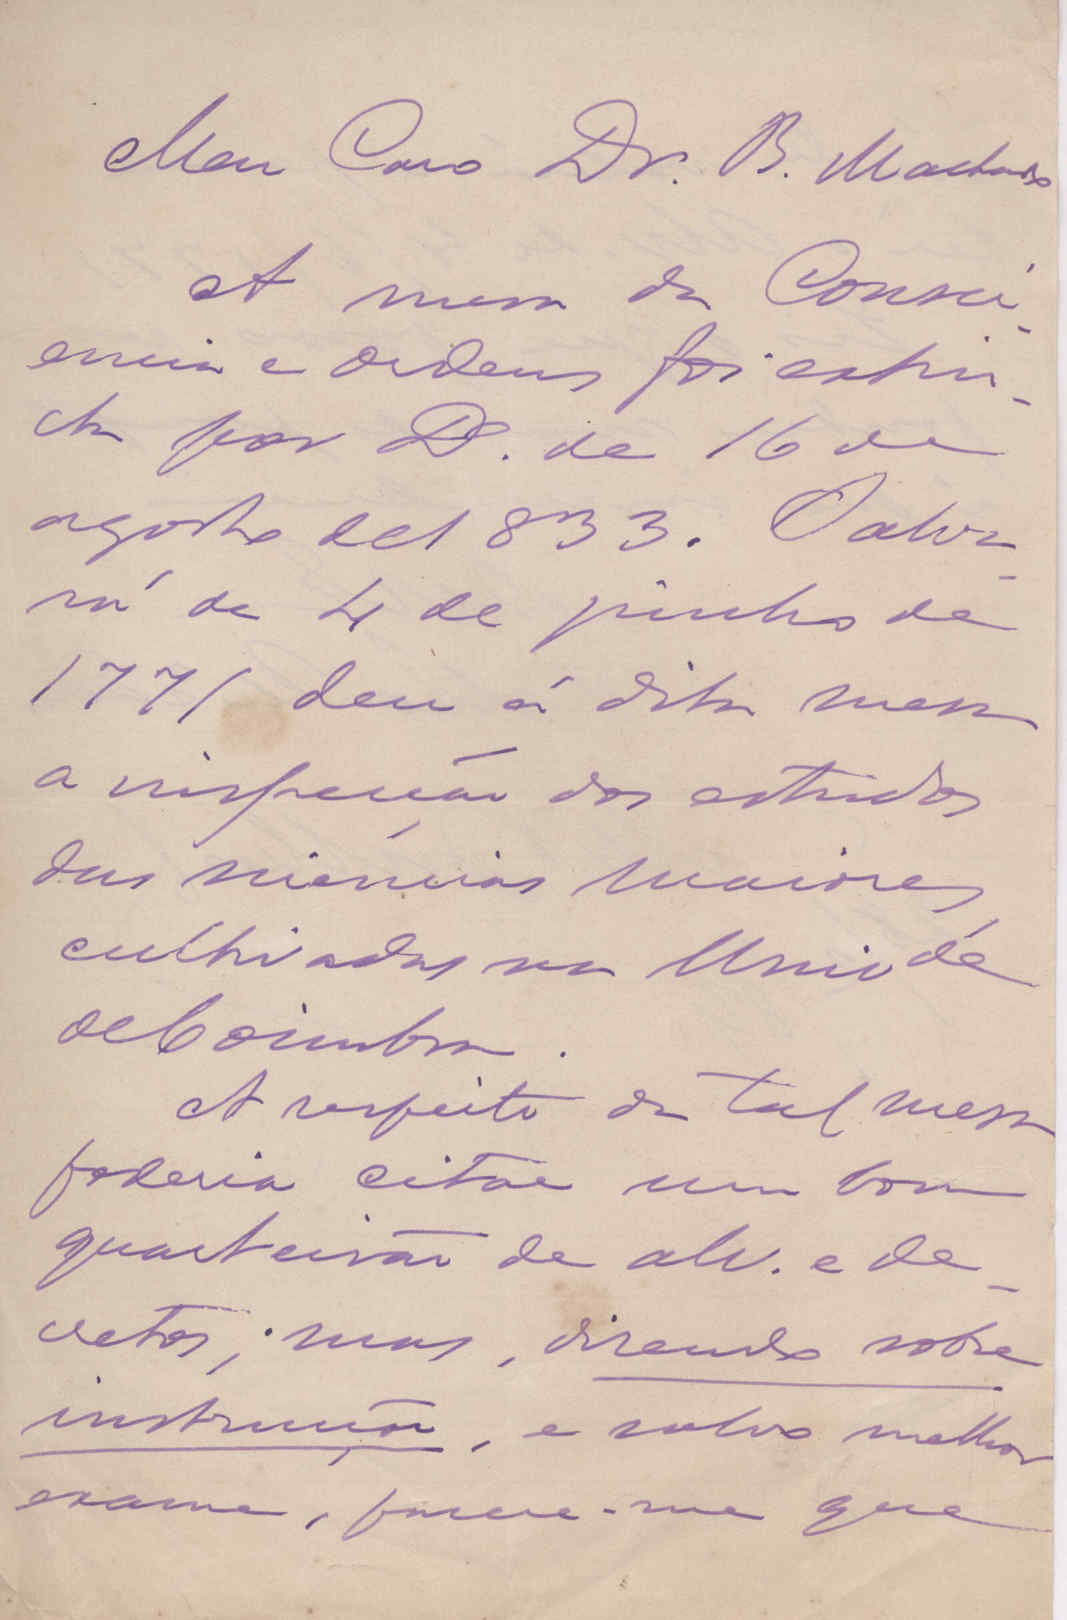 Meu Caro Dr. B. Machado
A mesa da Consci-
encia e ordens foi extin-
cta por D. de 16 de
agosto de 1833. O alva-
rá de 4 de junho de
1771 deu á dita mesa
a inspecção dos estudos
das sciencias maiores,
cultivadas na Univ.de
de Coimbra.
A respeito da tal mesa
poderia citar um bom
quarteirão de alv. e de-
cretos; mas, dizendo sobre
instrucção, e salvo melhor
exame, parece-me que